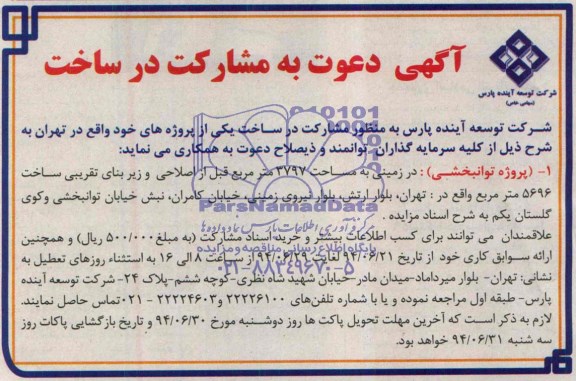 آگهی دعوت به مشارکت در ساخت
شرکت توسعه آینده پارس
(سهامی خاص)
شرکت توسعه آینده پارس به منظور مشارکت در ساخت یکی از پروژه های خود واقع در تهران به
شرح ذیل از کلیه سرمایه گذاران توانمند و ذیصلاح دعوت به همکاری می نماید:
۱- (پروژه توانبخشی) : در زمینی به مساحت ۳۷۹۷ متر مربع قبل از اصلاحی و زیر بنای تقریبی ساخت
۵۶۹۶ متر مربع واقع در : تهران، بلوار ارتش، بلوار نیروی زمینی، خیابان کامران، نبش خیابان توانبخشی و کوی
گلستان یکم به شرح اسناد مزایده .
علاقمندان می توانند برای کسب اطلاعات بیشتر و خرید اسناد مشارکت (به مبلغ ۵۰۰/۰۰۰ ریال) و همچنین
ارائه سوابق کاری خود از تاریخ ۹۴/۰۶/۲۱ لغایت ۹۴/۰۶/۲۹ از ساعت ۸ الی ۱۶ به استثناء روزهای تعطیل به
نشانی: تهران- بلوار میرداماد-میدان مادر-خیابان شهید شاه نظری-کوچه ششم-پلاک ۲۴- شرکت توسعه آینده
پارس- طبقه اول مراجعه نموده و یا با شماره تلفن‌های ۲۲۲۲۶۱۰۰ و ۲۲۲۲۴۶۰۳ - ۰۲۱ تماس حاصل نمایند.
لازم به ذکر است که آخرین مهلت تحویل پاکت ها روز دوشنبه مورخ ۹۴/۰۶/۳۰ و تاریخ بازگشایی پاکات روز
سه شنبه ۹۴/۰۶/۳۱ خواهد بود.
ParsNamadData
پایگاه اطلاع رسانی مناقصه و مزایده
۰۲۱-۸۸۳۴۹۶۷۰-۵